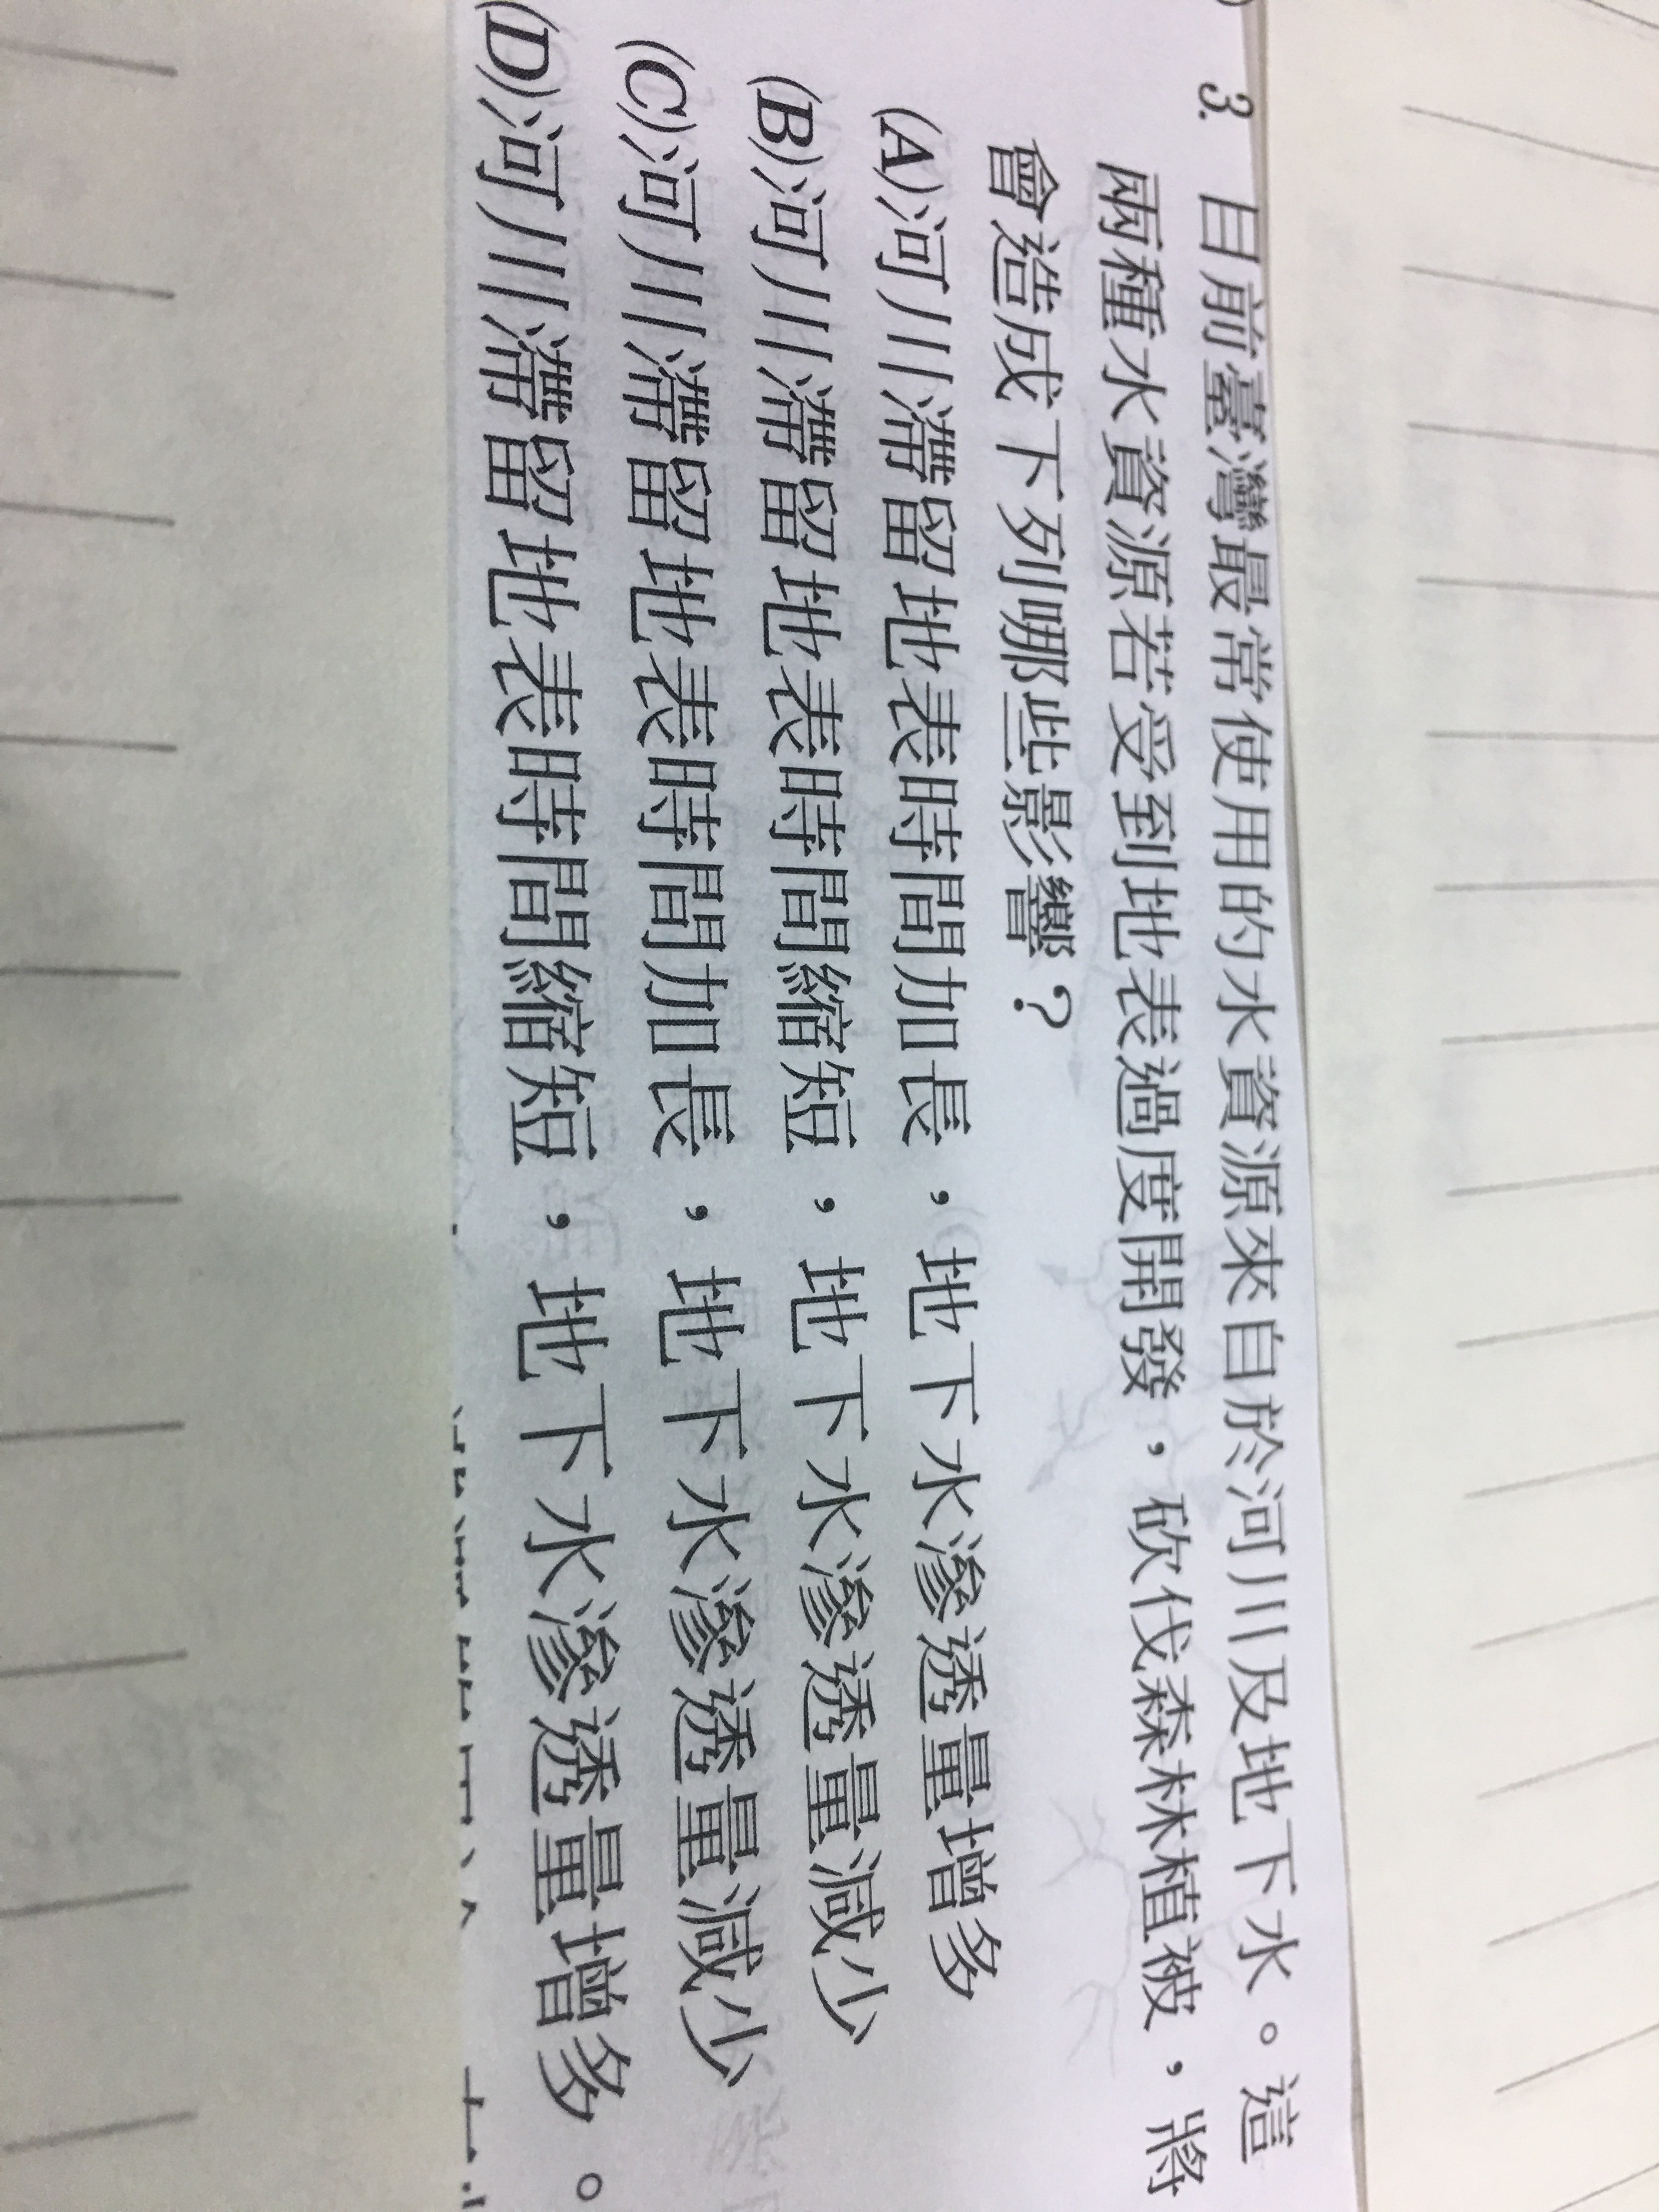 3. 目前臺灣最常使用的水資源來自於河川及地下水。這
兩種水資源若受到地表過度開發，砍伐森林植被，將
會造成下列哪些影響？
(A)河川滯留地表時間加長，地下水滲透量增多
(B)河川滯留地表時間縮短，地下水滲透量減少
(C)河川滯留地表時間加長，地下水滲透量減少
(D)河川滯留地表時間縮短，地下水滲透量增多。